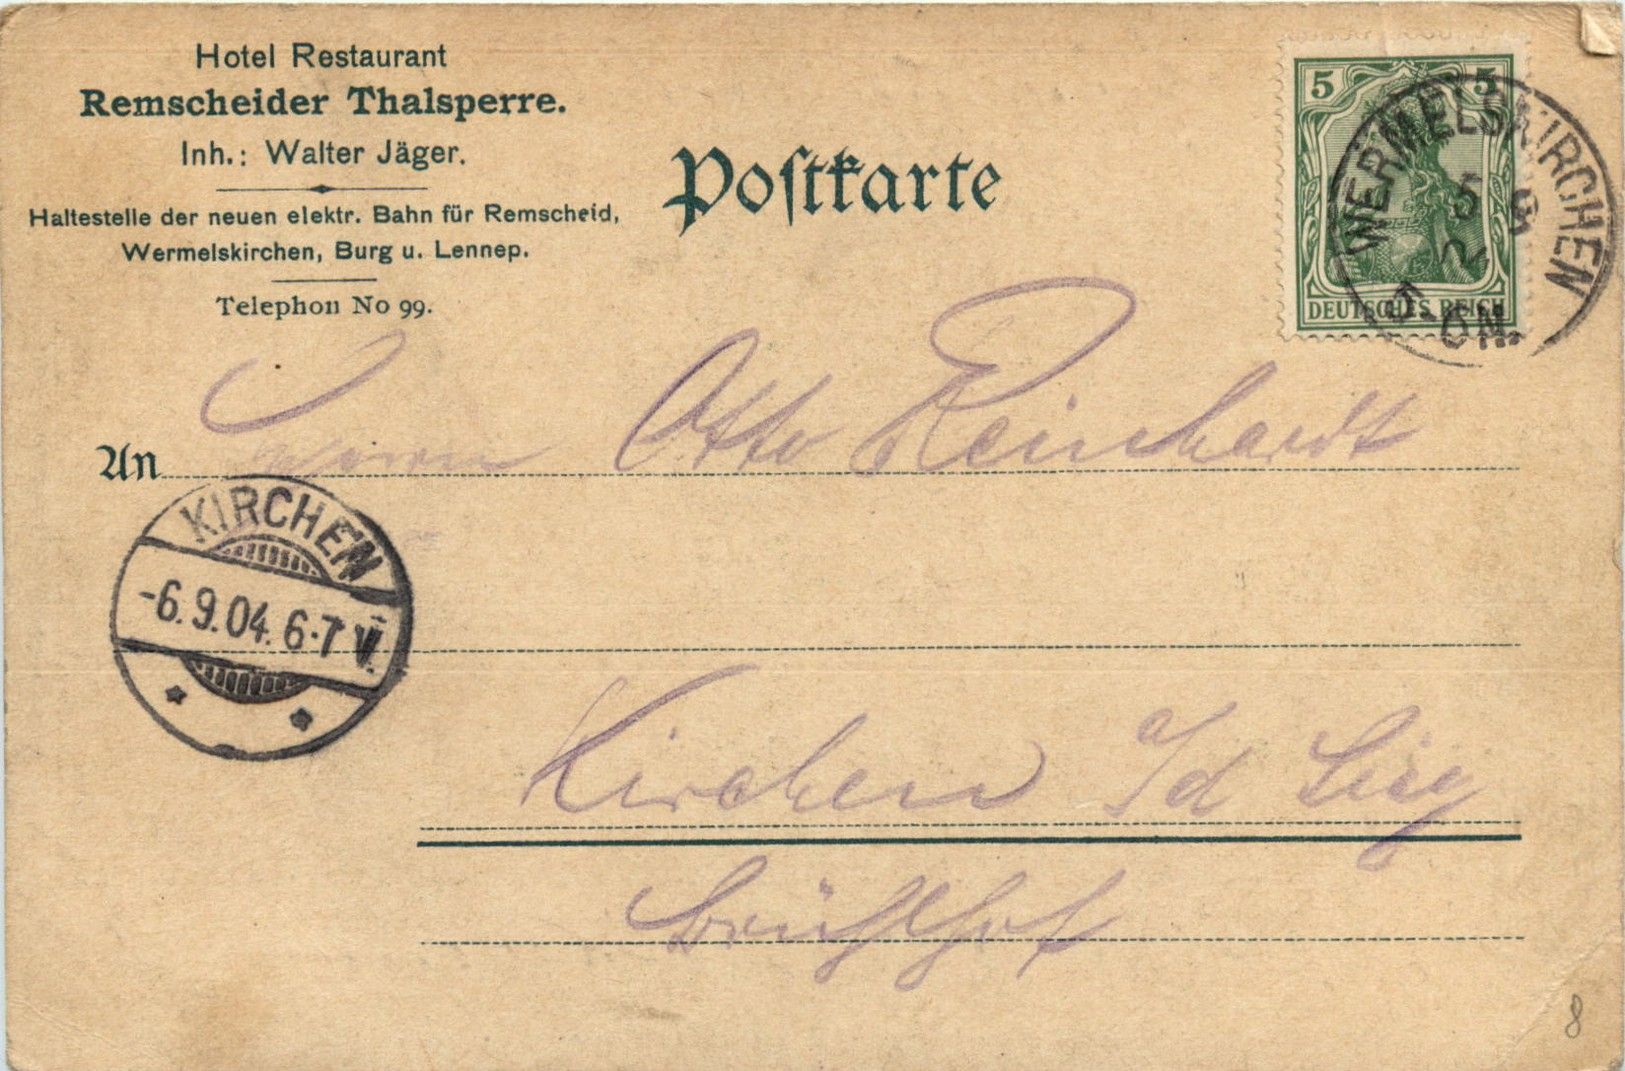 Hotel Restaurant
Remscheider Thalsperre.
Inh.: Walter Jäger.
Haltestelle der neuen elektr. Bahn für Remscheid,
Wermelskirchen, Burg u. Lennep.
Telephon No 99.
Poſtkarte
5 5
DEUTSCHES REICH
WERMELSKIRCHEN
5 9
An Herrn Otto Reinhardt
KIRCHEN
-6.9.04. 6-7 V.
Kirchen a/d Sieg
Brühlhof
8